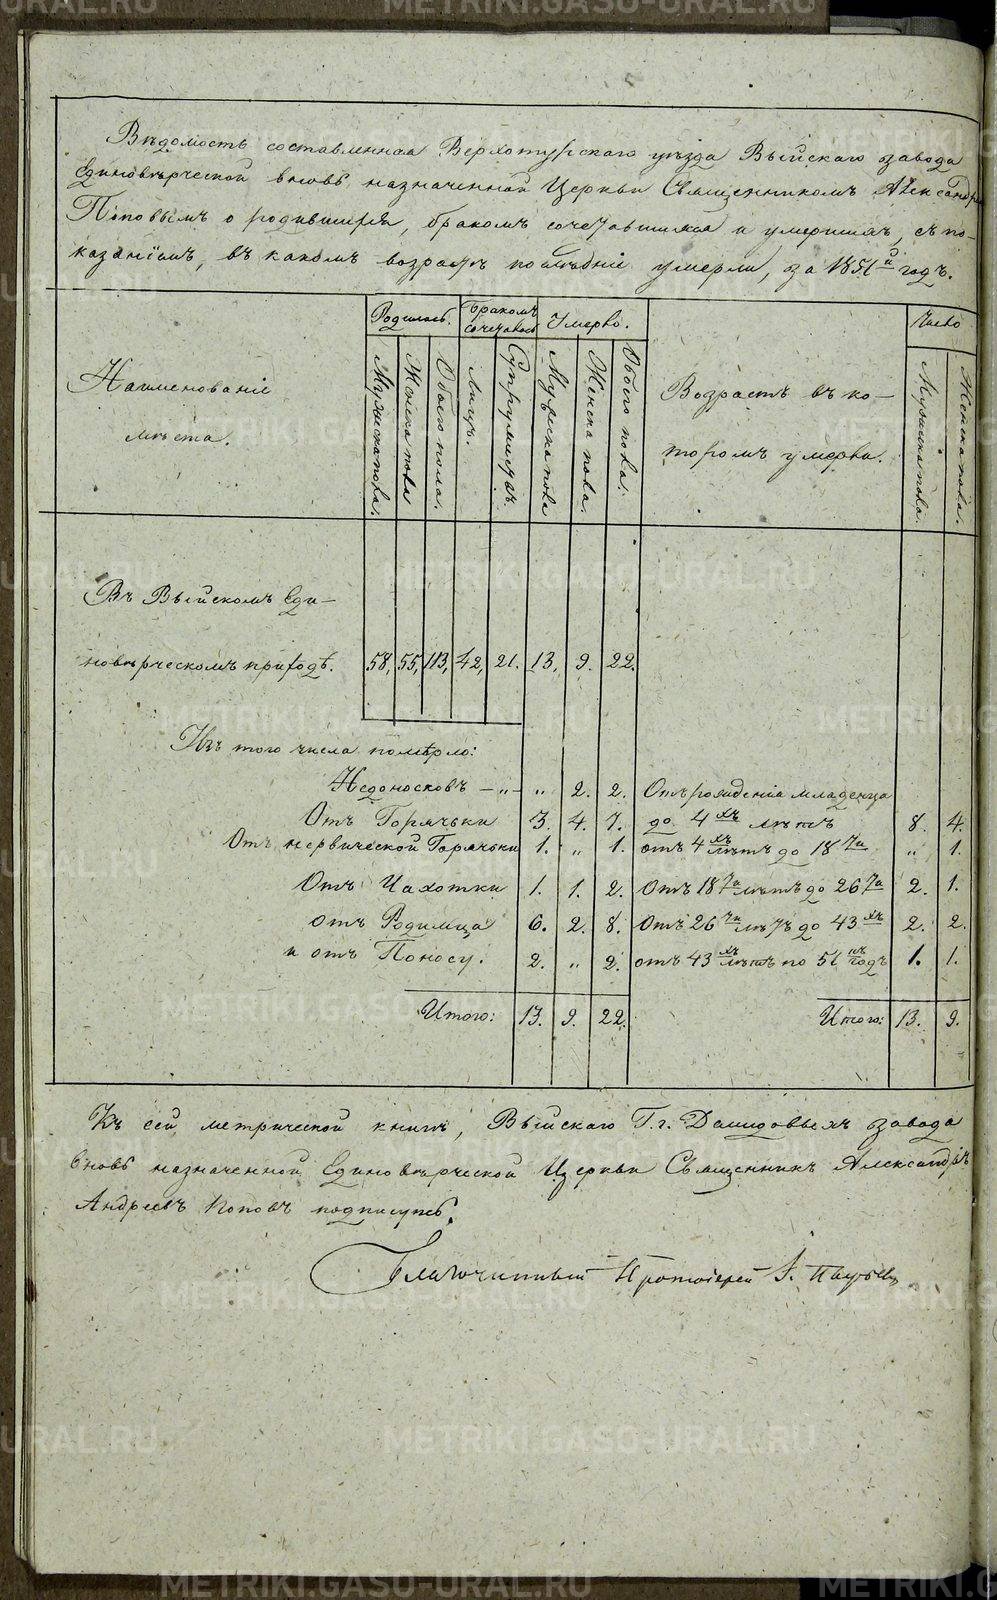 Вѣдомость составленная Верхотурскаго уѣзда Выйскаго завода
Единовѣрческой вновь назначенной Церкви Священникомъ Александромъ
Поповымъ о родившихся, бракомъ сочетавшихся и умершихъ, съ по-
казаніемъ, въ какомъ возрастѣ послѣдніе умерли, за 1851й годъ.
Наименованіе
мѣста.
Родилось.
Бракомъ
сочеталось
Умерло.
Мужеска пола.
Женска пола
Обоего пола.
Лицъ.
Супружествъ.
Мужеска пола
Женска пола.
Обоего пола.
Возрастъ въ ко-
торомъ умерли.
Число
Мужеска пола.
Женска пола.
Въ Выйскомъ Еди-
новѣрческомъ приходѣ. 58, 55, 113, 42, 21. 13. 9. 22.
Изъ того числа помѣрло:
Недоносковъ — „ — „ 2. 2. Отъ рожденія младенца
Отъ Горячьки 3. 4. 7. до 4хъ лѣтъ 8. 4.
Отъ нервической Горячьки 1. „ 1. отъ 4хъ лѣтъ до 18ти „ 1.
Отъ Чахотки 1. 1. 2. Отъ 18ти лѣтъ до 26ти 2. 1.
отъ Родимца 6. 2. 8. Отъ 26ти лѣтъ до 43хъ 2. 2.
и отъ Поносу. 2. „ 2. отъ 43хъ лѣтъ по 51 годъ 1. 1.
Итого: 13. 9. 22. Итого: 13. 9.
Къ сей метрической книгѣ, Выйскаго Г.г. Демидовыхъ завода
вновь назначенной Единовѣрческой Церкви Священникъ Александръ
Андреевъ Поповъ подписуюсь.
Благочинный Протоіерей
METRIKI.GASO-URAL.RU